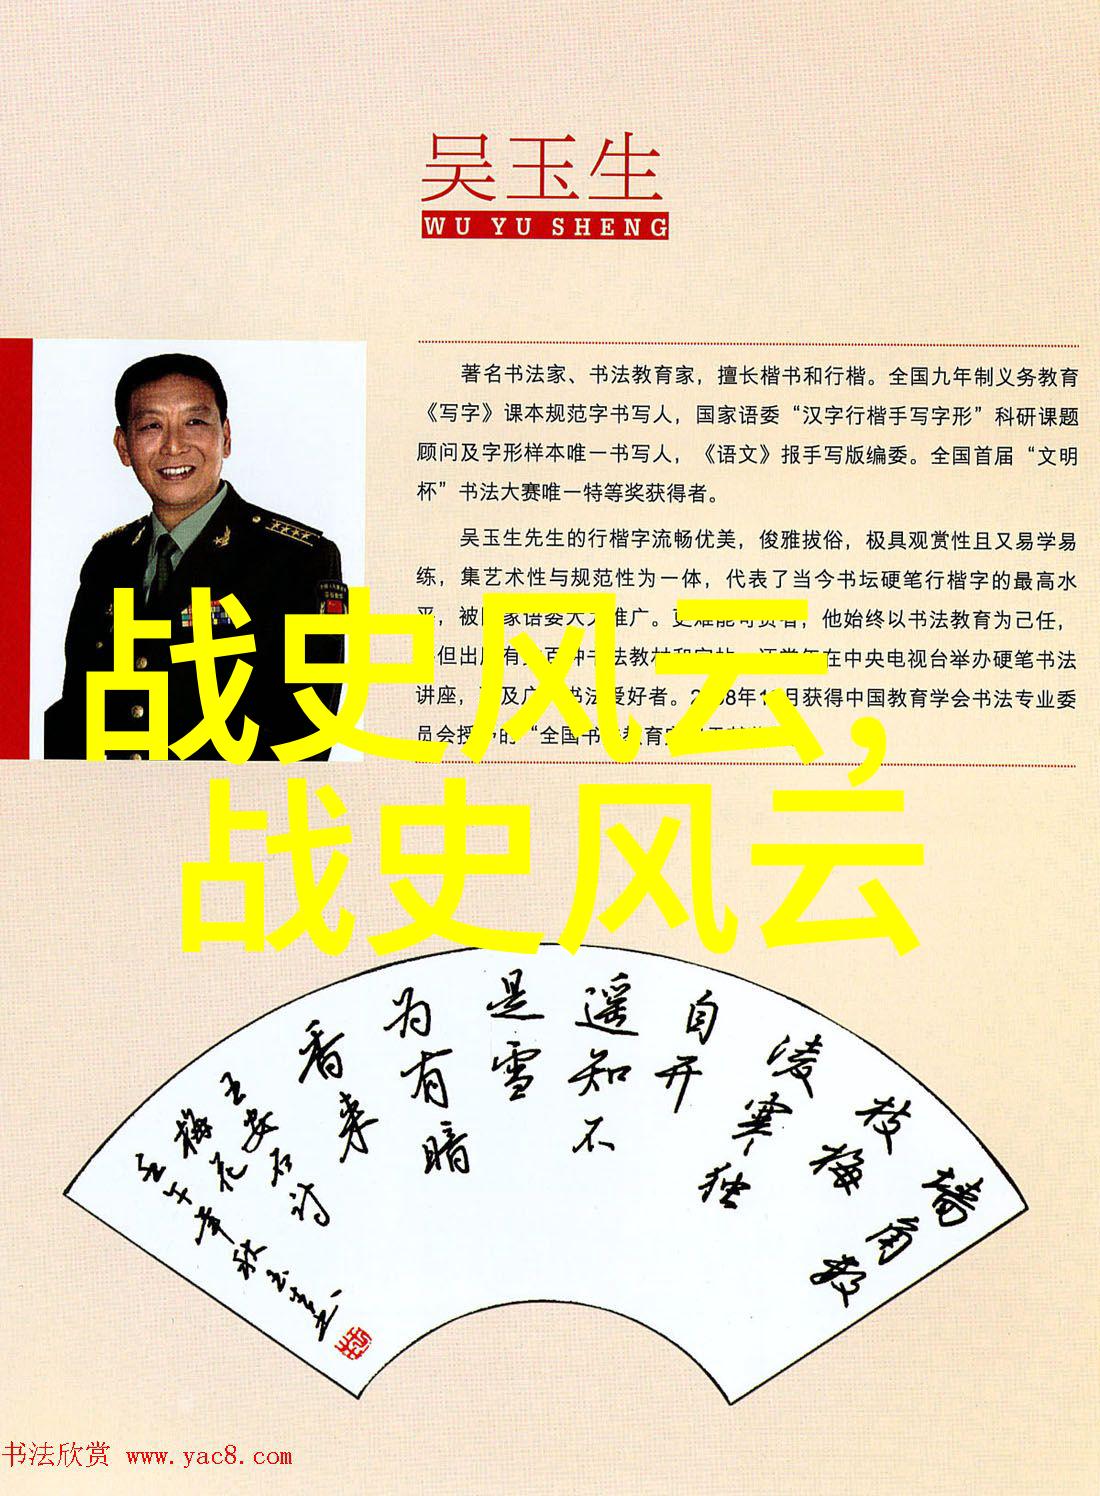 吴玉生
WU YU SHENG
著名书法家、书法教育家，擅长楷书和行楷。全国九年制义务教育
《写字》课本规范字书写人，国家语委“汉字行楷手写字形”科研课题
顾问及字形样本唯一书写人，《语文》报手写版编委。全国首届“文明
杯”书法大赛唯一特等奖获得者。
吴玉生先生的行楷字流畅优美，俊雅拔俗，极具观赏性且又易学易
练，集艺术性与规范性为一体，代表了当今书坛硬笔行楷字的最高水
被 家语委大 推广。更难能可贵者，他始终以书法教育为己任，
但出 有 百种书法教材和字帖，还常年在中央电视台举办硬笔书法
讲座， 及广 书法爱好者。 8年1 月获得中国教育学会书法专业委
员会授予的“全国书 教育
战史风云，
战史风云
墙角数
枝梅
凌寒独
自开
遥知不
是雪
为有暗
香来
王安石诗
梅花
壬午年秋玉生书
书法欣赏 www.yac8.com